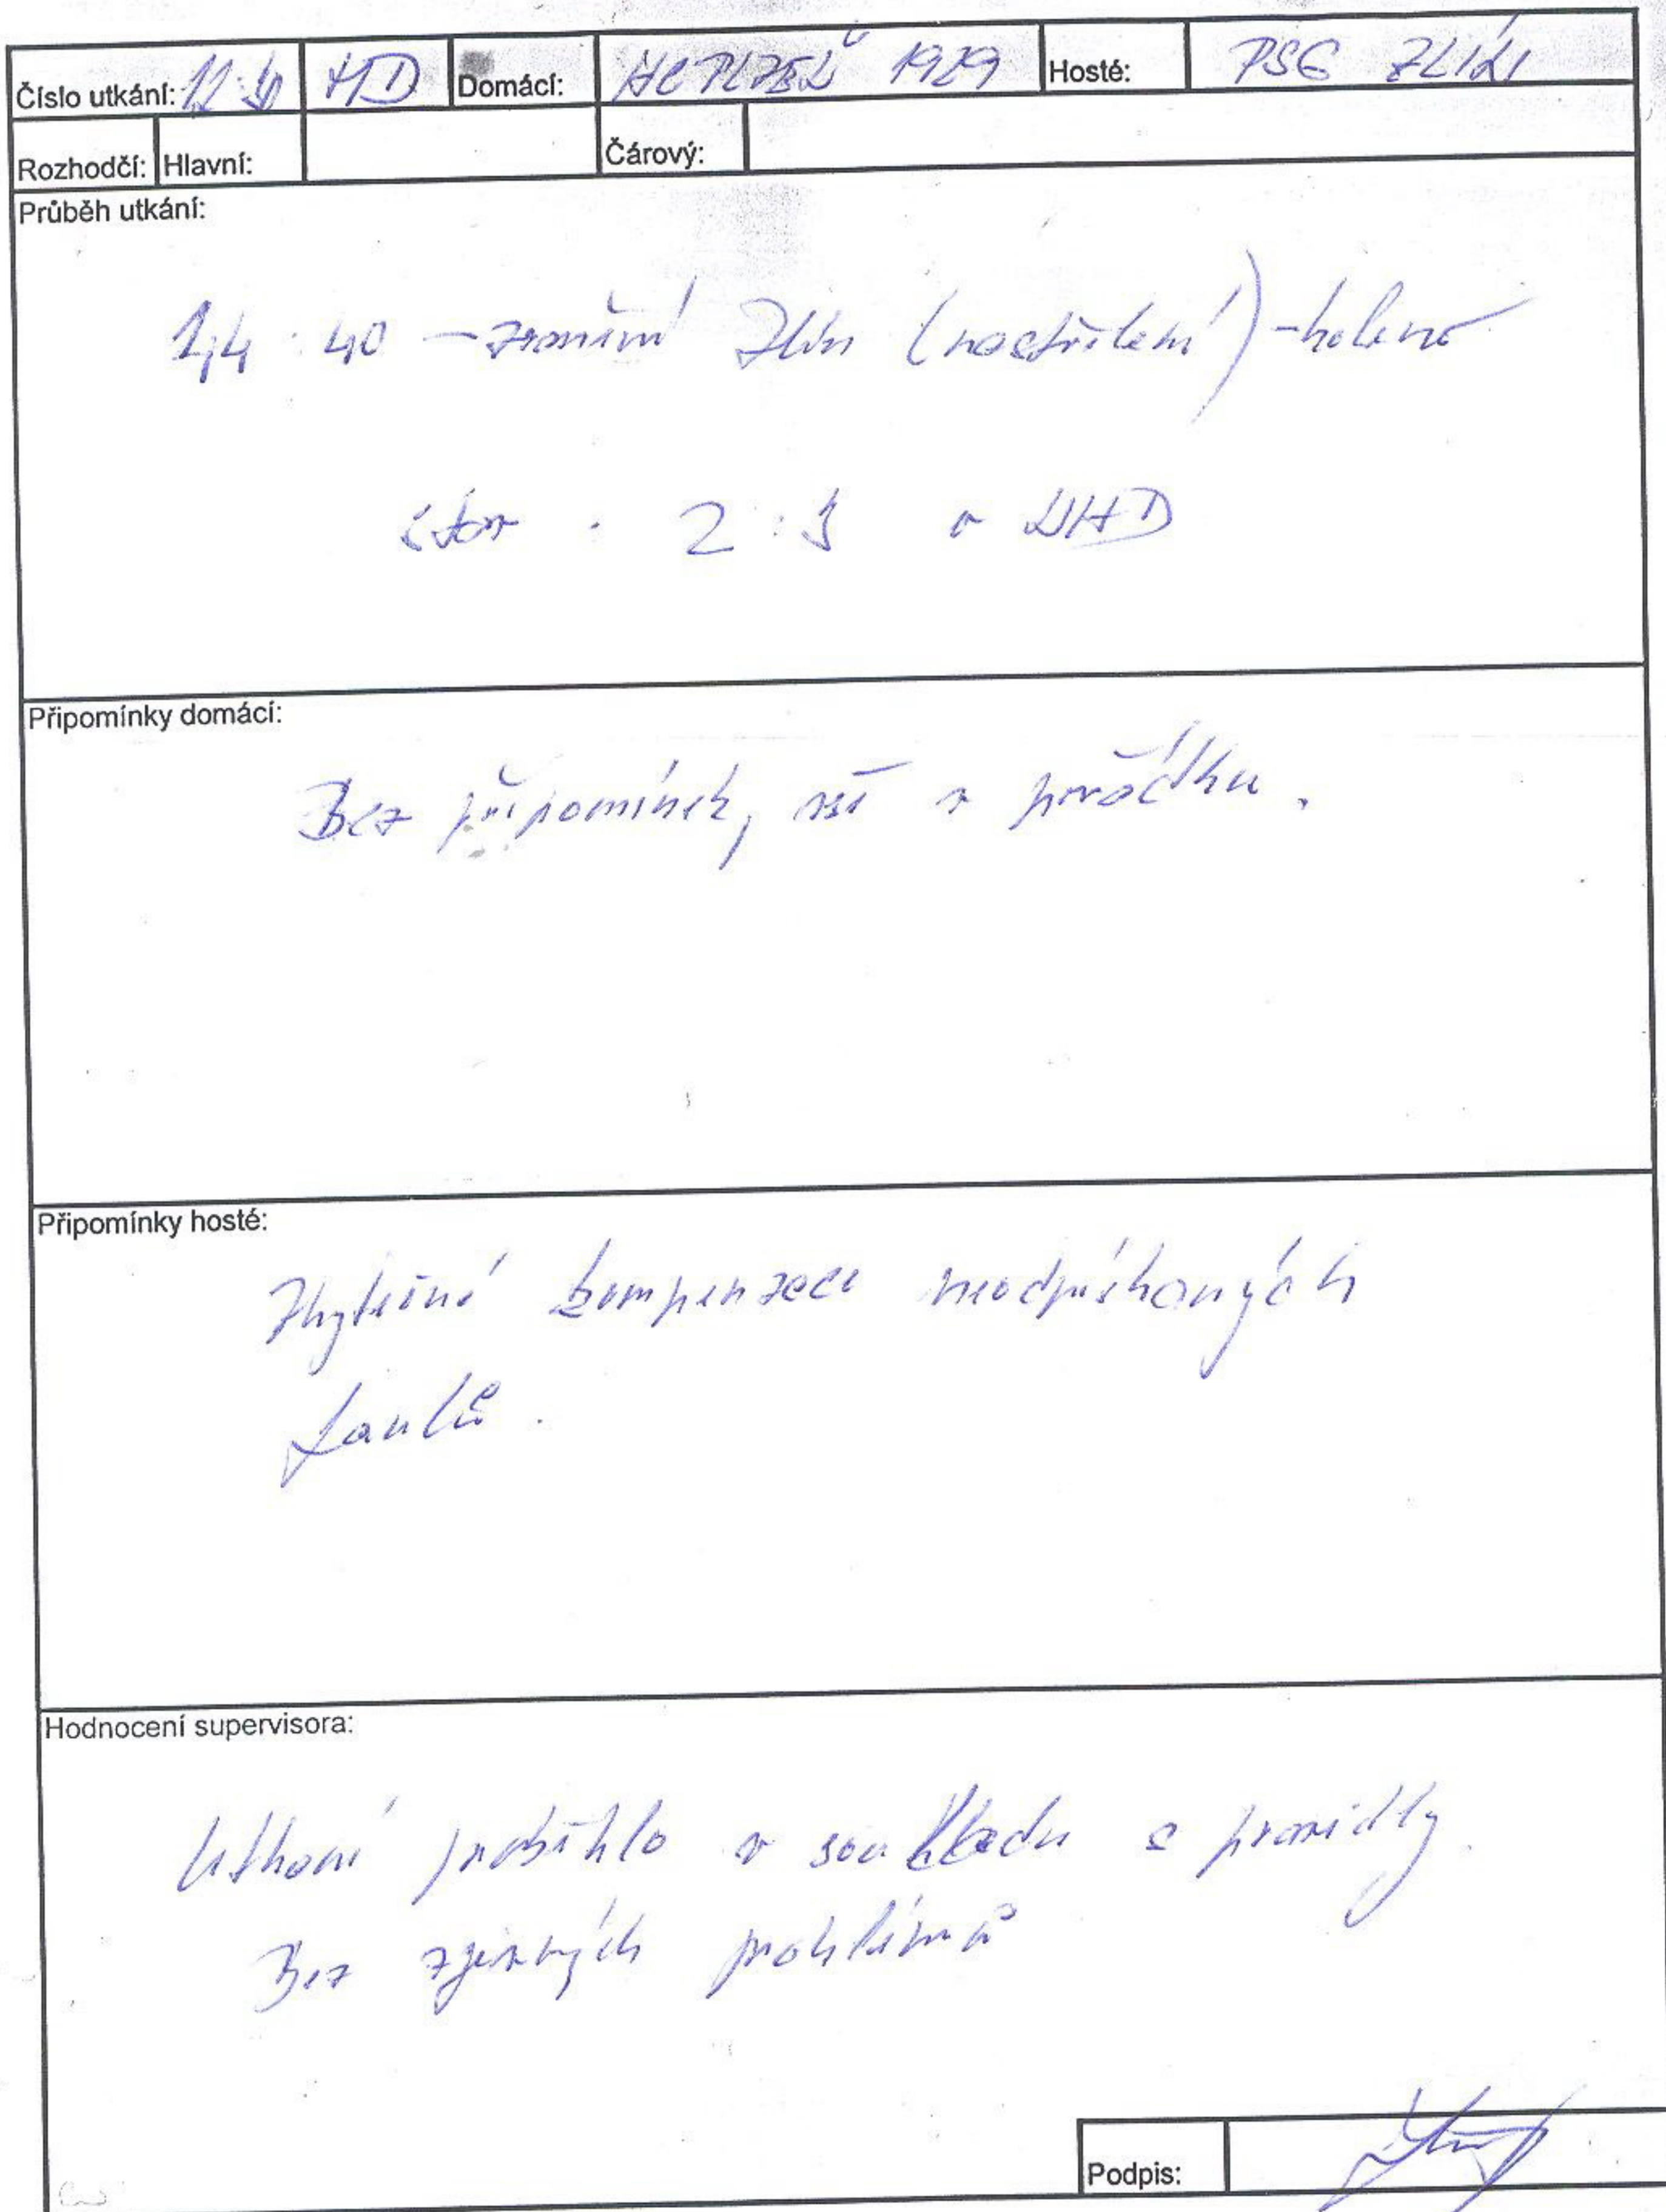 Číslo utkání: HD Domácí: HC PLZEŇ 1929 Hosté: PSG ZLÍN
Rozhodčí: Hlavní: Čárový:
Průběh utkání:
14:40 - zranění Zlín (nastřelení) - koleno
stav: 2:3 v
Připomínky domácí:
Bez připomínek, vše v pořádku.
Připomínky hosté:
Zbytečné kompenzace neodpískaných
faulů.
Hodnocení supervisora:
Utkání proběhlo v souladu s pravidly.
Bez zjevných problémů
Podpis: